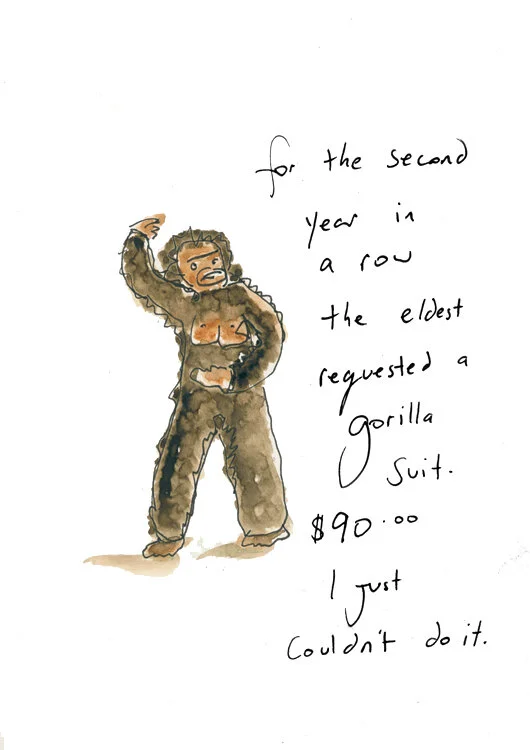 for the second
year in
a row
the eldest
requested a
gorilla
suit.
$90.00
I just
Couldn't do it.